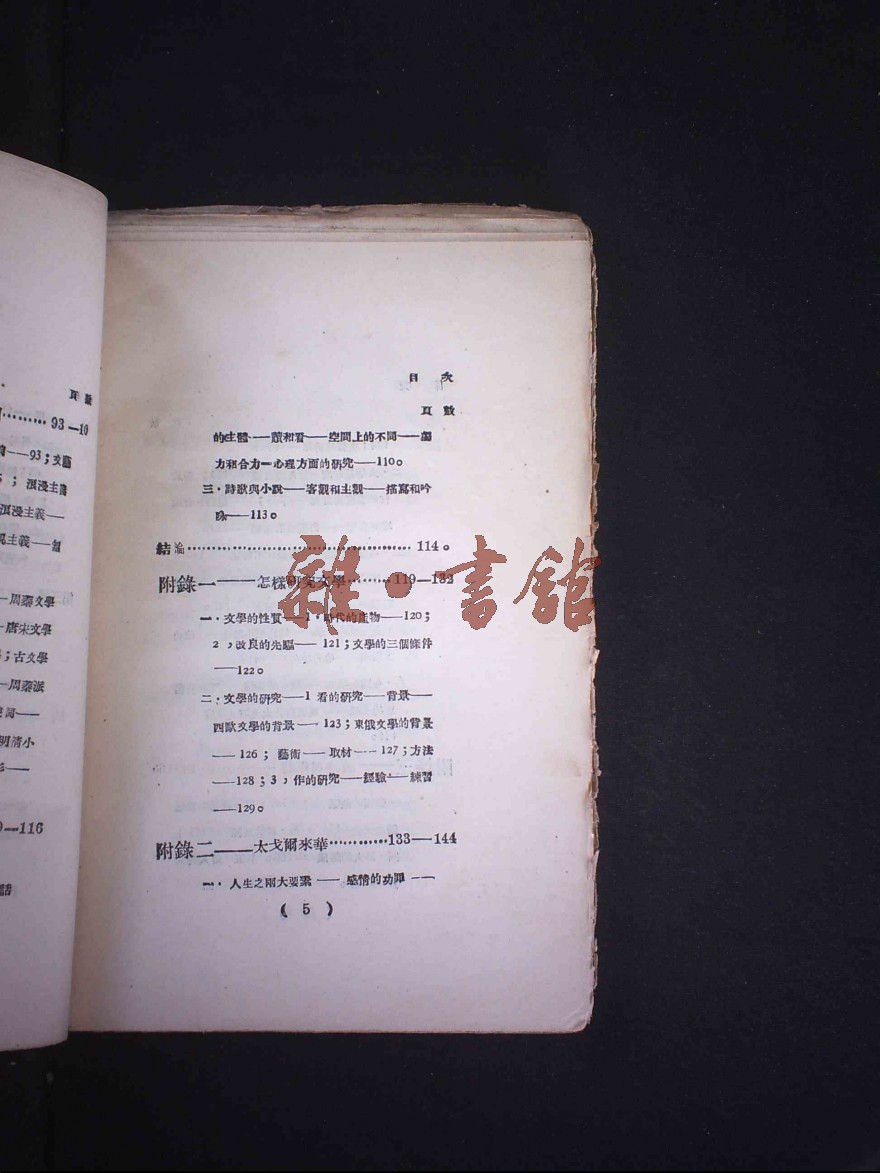 頁數
93—10
—93；文臨
；浪漫主義
浪漫主義—
—周秦文學
—唐宋文學
；古文學
—周秦派
詞—
明清小
—116
話
目次
頁數
的主體——讀和看——空間上的不同——獨
力和合力—心理方面的研究——110。
三．詩歌與小說——客觀和主觀——描寫和吟
咏——113。
結論……………………………………114。
附錄一——怎樣研究文學………119—132
一．文學的性質——1．時代的產物——120；
2，改良的先驅——121；文學的三個條件
——122。
二．文學的研究——1看的研究——背景——
西歐文學的背景——123；東俄文學的背景
——126；藝術——取材——127；方法
——128；3，作的研究——經驗——練習
——129。
附錄二——太戈爾來華…………133—144
一．人生之兩大要素——感情的功用——
(5)
雜·書館